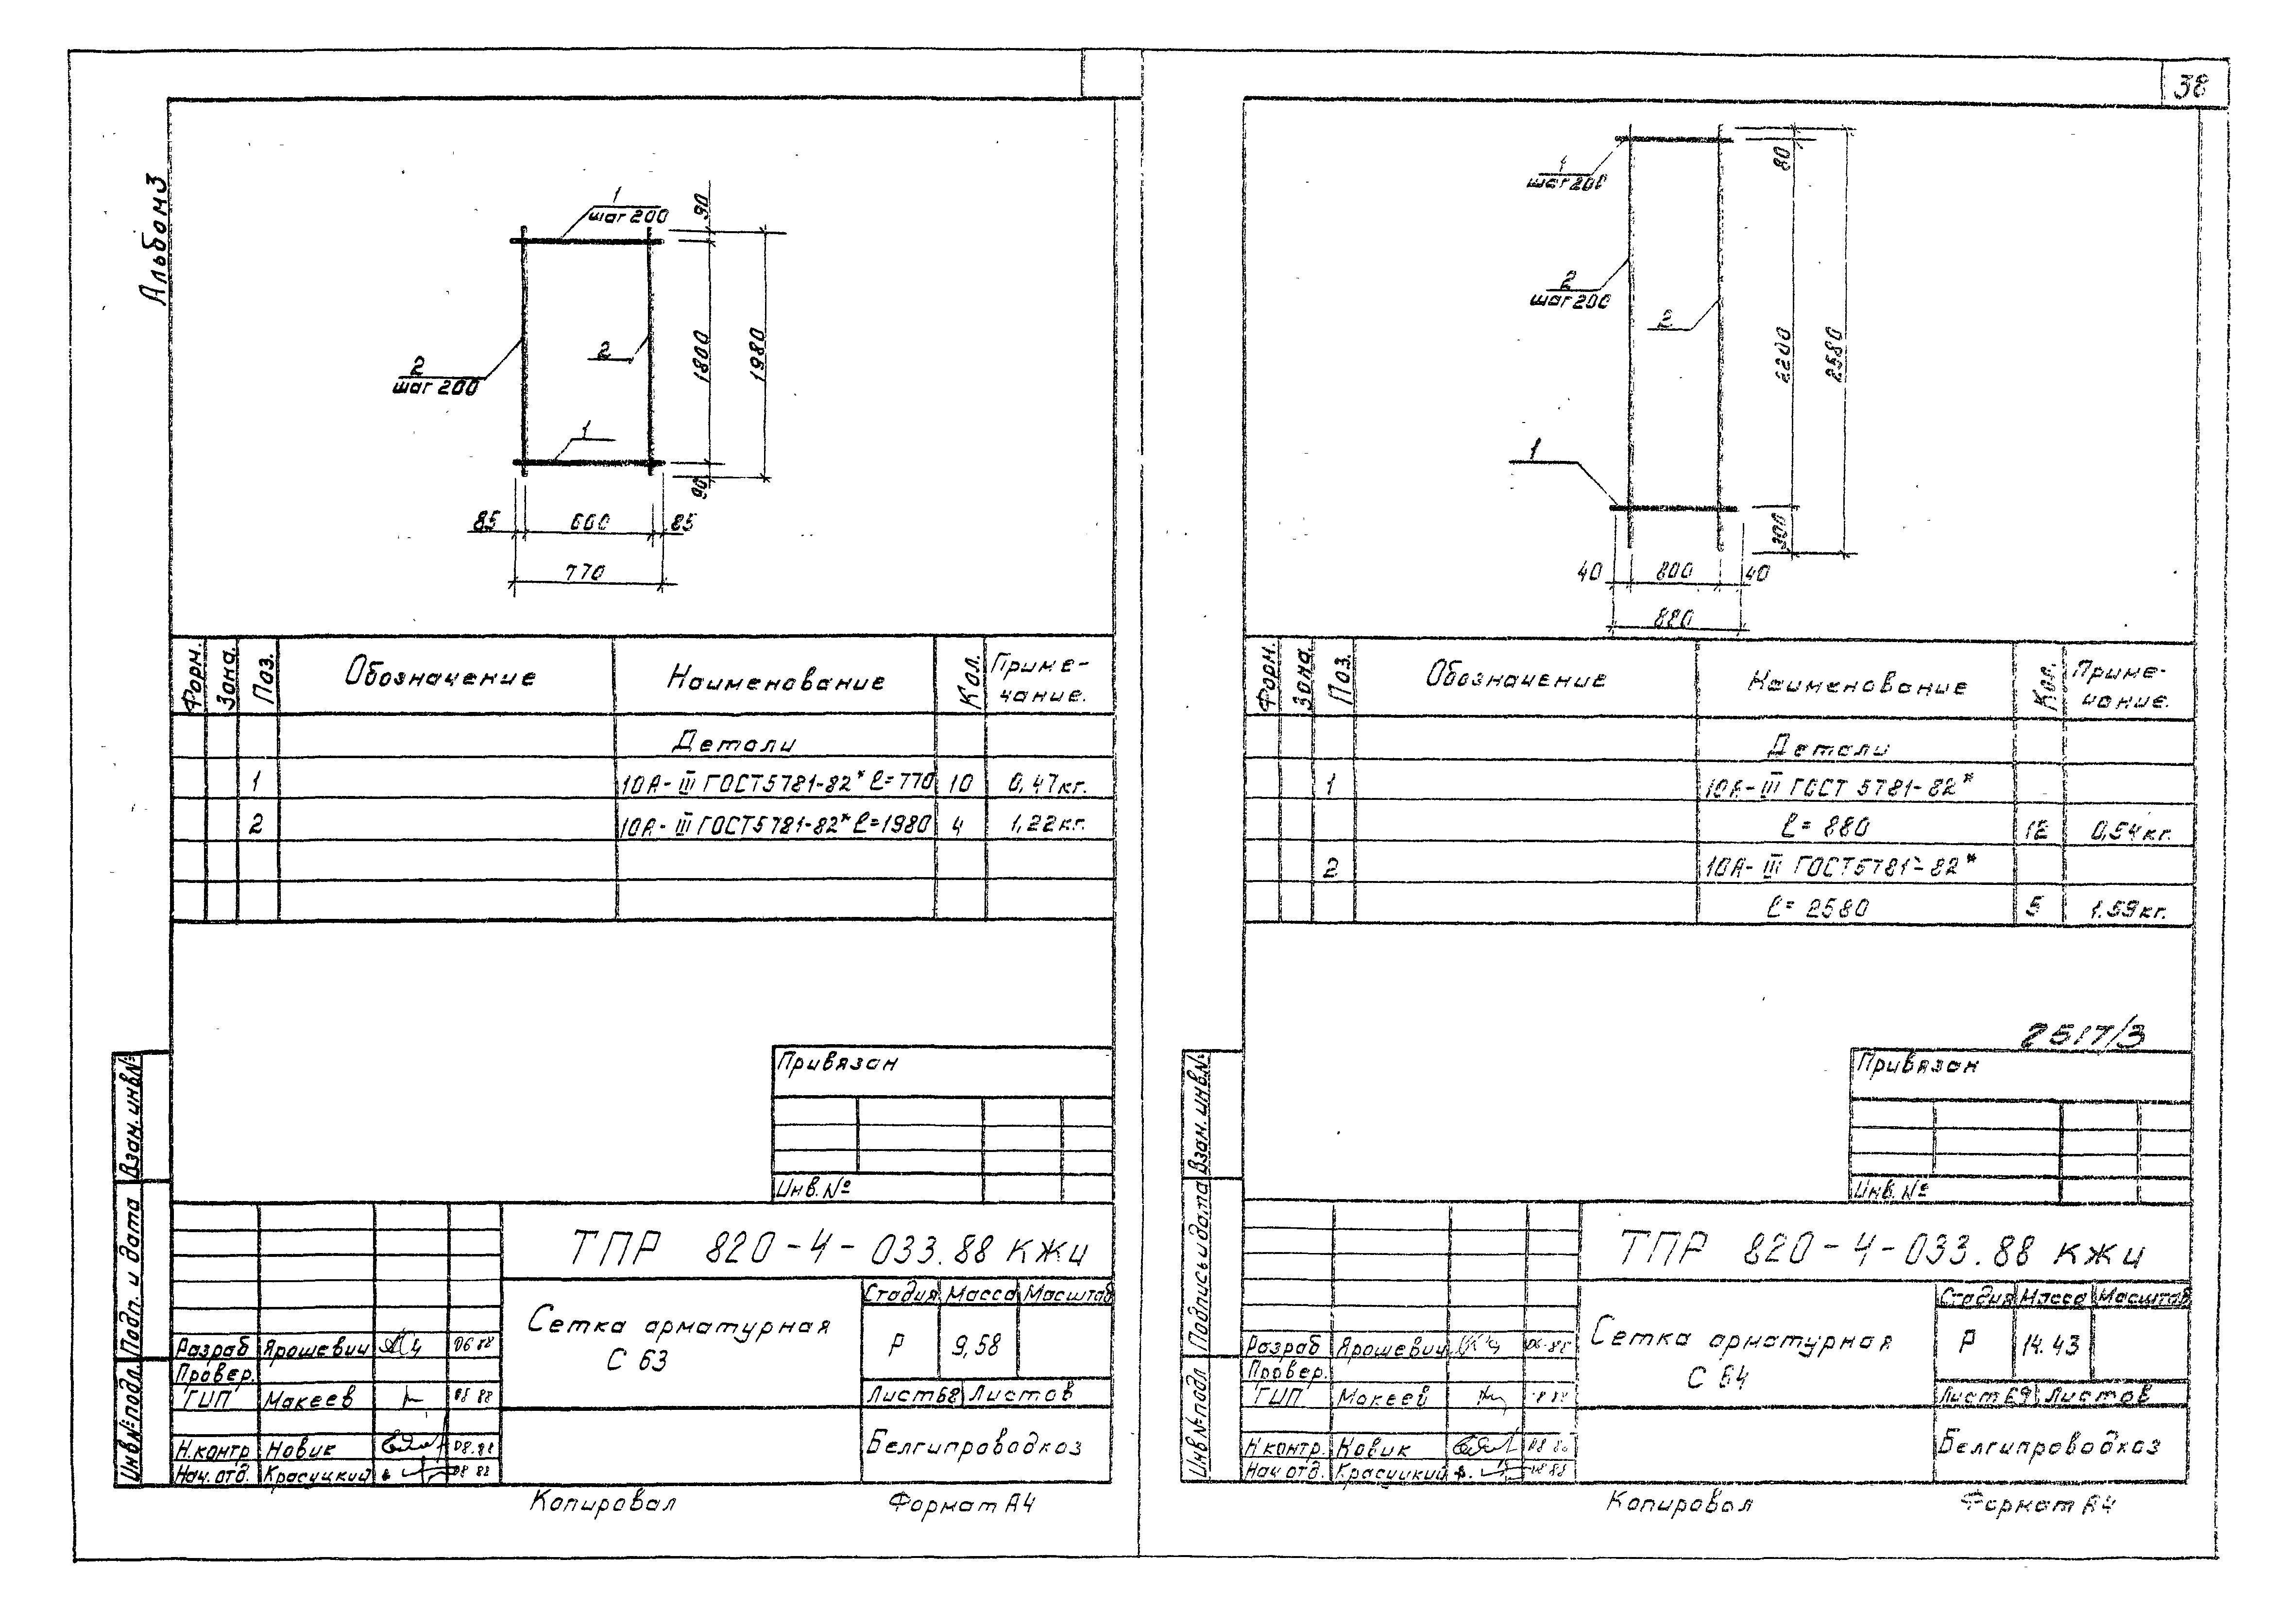 38
Альбом 3
1
шаг 200
90
2
шаг 200
2
1800
1980
1
90
85 600 85
770
Форм. Зона. Поз. Обозначение Наименование Кол. Приме-
чание.
Детали
1 10А-III ГОСТ 5781-82* ℓ=770 10 0,47кг.
2 10А-III ГОСТ 5781-82* ℓ=1980 4 1,22кг.
Привязан
Инв.№
Взам. инв№
Подп. и дата
Инв№подл
ТПР 820-4-033.88 КЖИ
Сетка арматурная
С 63
Стадия Масса Масштаб
Р 9,58
Лист 68 Листов
Белгипроводхоз
Разраб Ярошевич 06 88
Провер.
ГИП Макеев 08 88
Н.контр Новик 08.88
Нач. отд. Красуцкий 08 88
Копировал Формат А4
1
шаг 200
80
2
шаг 200
2
2200
2580
1
300
40 800 40
880
Форм. Зона. Поз. Обозначение Наименование Кол. Приме-
чание.
Детали
1 10А-III ГОСТ 5781-82*
ℓ= 880 12 0,54кг.
2 10А-III ГОСТ 5781-82*
ℓ= 2580 5 1.59кг.
2517/3
Привязан
Инв. №
Взам. инв№
Подпись и дата
Инв№подл
ТПР 820-4-033.88 КЖИ
Сетка арматурная
С 64
Стадия Масса Масштаб
Р 14.43
Лист 69 Листов
Белгипроводхоз
Разраб Ярошевич 06.88
Провер.
ГИП Макеев 08 88
Н.контр. Новик 08 88
Нач отд. Красуцкий 08 88
Копировал Формат А4